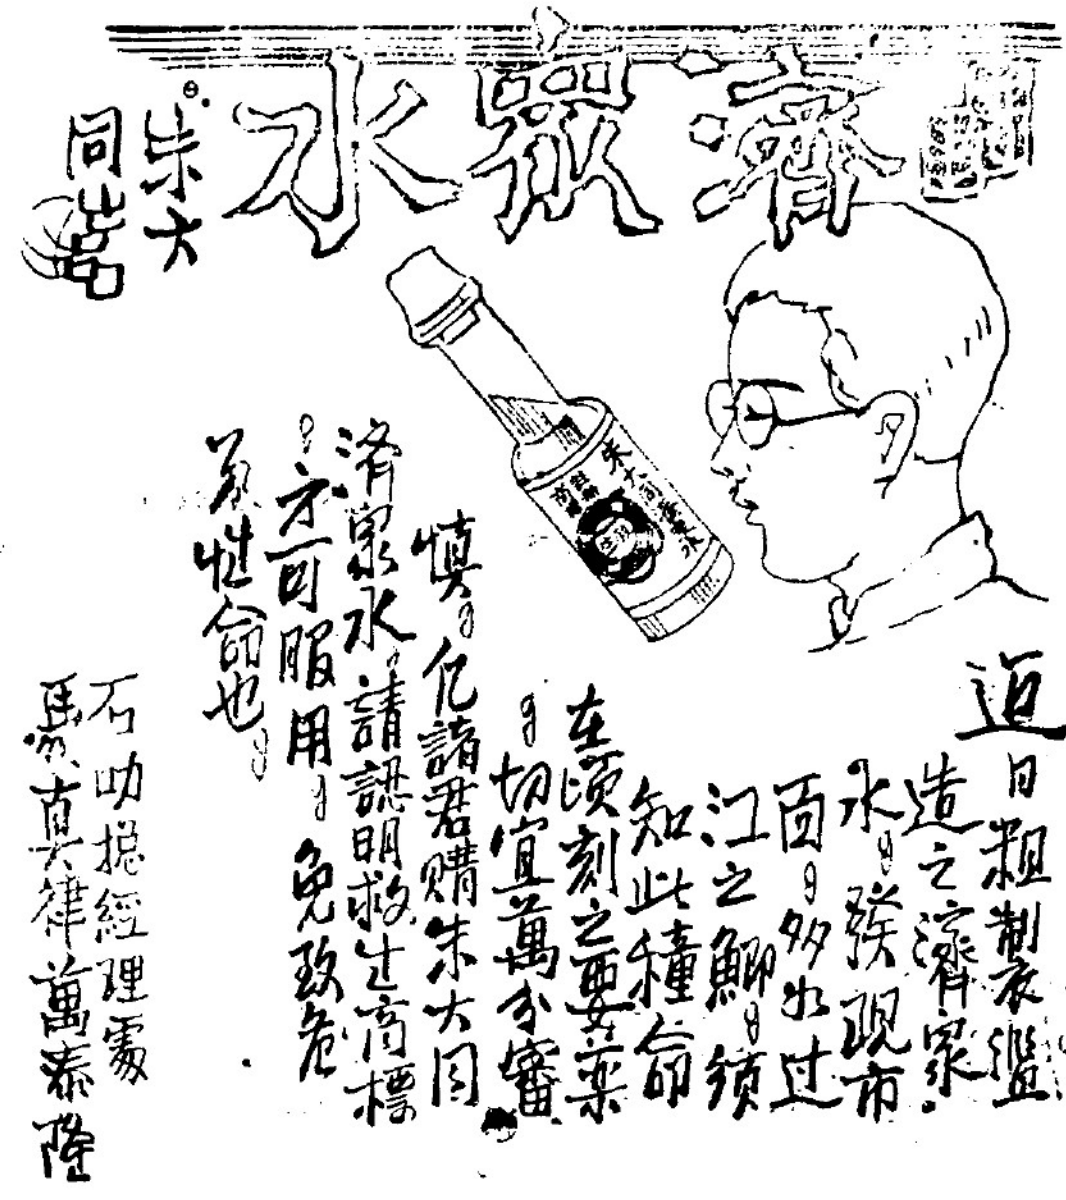 濟眾水
朱大
同
朱大同濟眾水
近日粗制濫
造之濟眾
水。發現市
面。多如过
江之鯽。須
知此種命
在頃刻之要藥
。切宜萬分審
慎。凡諸君購朱大同
濟眾水。請認明救生商標
。方可服用。免致危
及性命也。
石叻總經理處
馬真律萬泰隆